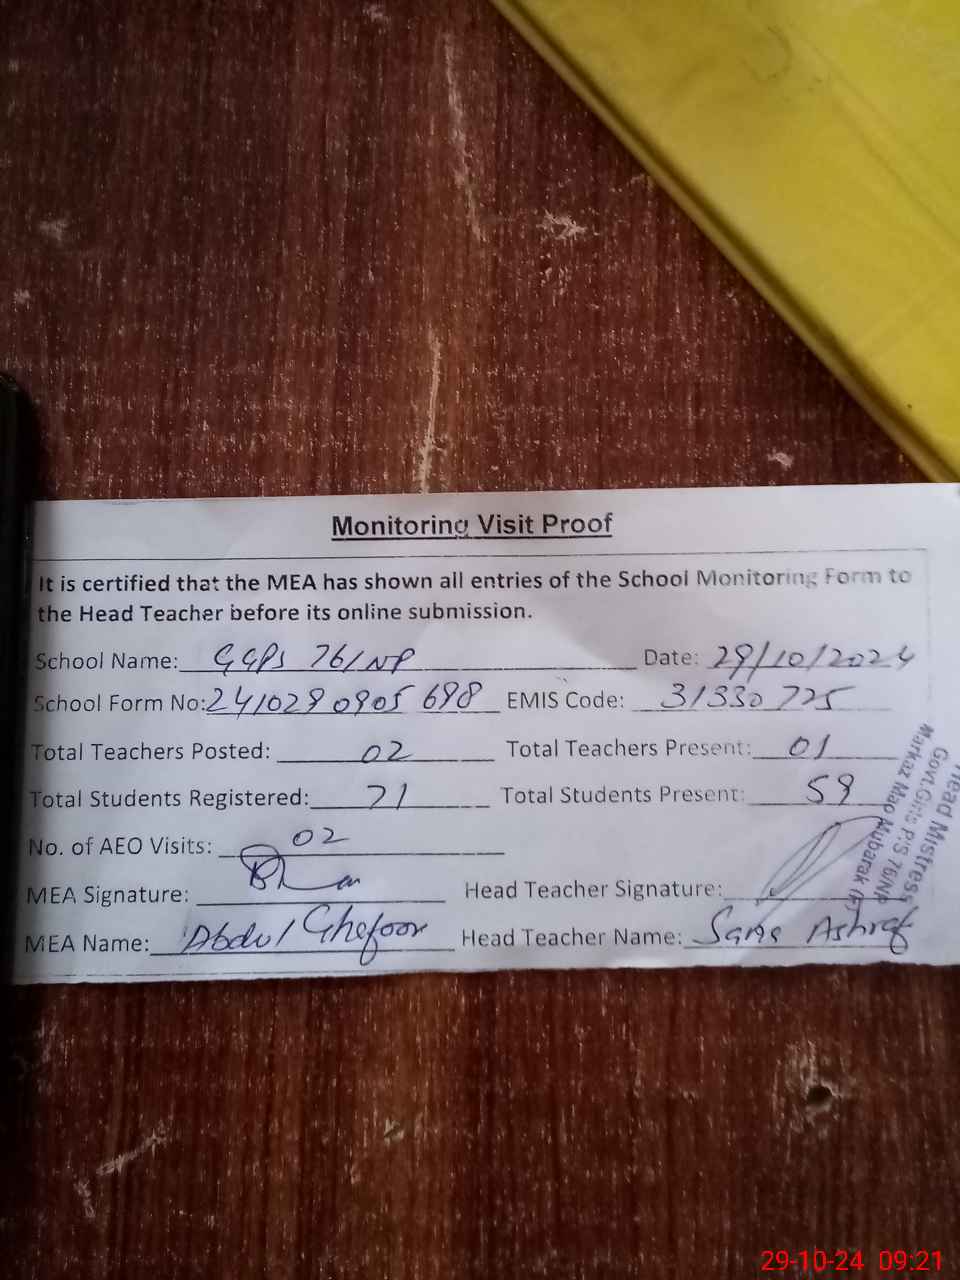 Monitoring Visit Proof
It is certified that the MEA has shown all entries of the School Monitoring Form to
the Head Teacher before its online submission.
School Name: GGPS 76/NP Date: 29/10/2024
School Form No: 241029 0905 698 EMIS Code: 31330725
Total Teachers Posted: 02 Total Teachers Present: 01
Total Students Registered: 71 Total Students Present: 59
No. of AEO Visits: 02
MEA Signature: Head Teacher Signature:
MEA Name: Abdul Ghafoor Head Teacher Name: Sana Ashraf
Head Mistress
Govt.Girls P/S 76/NP
Markaz Miao Mubarak (F)
29-10-24 09:21